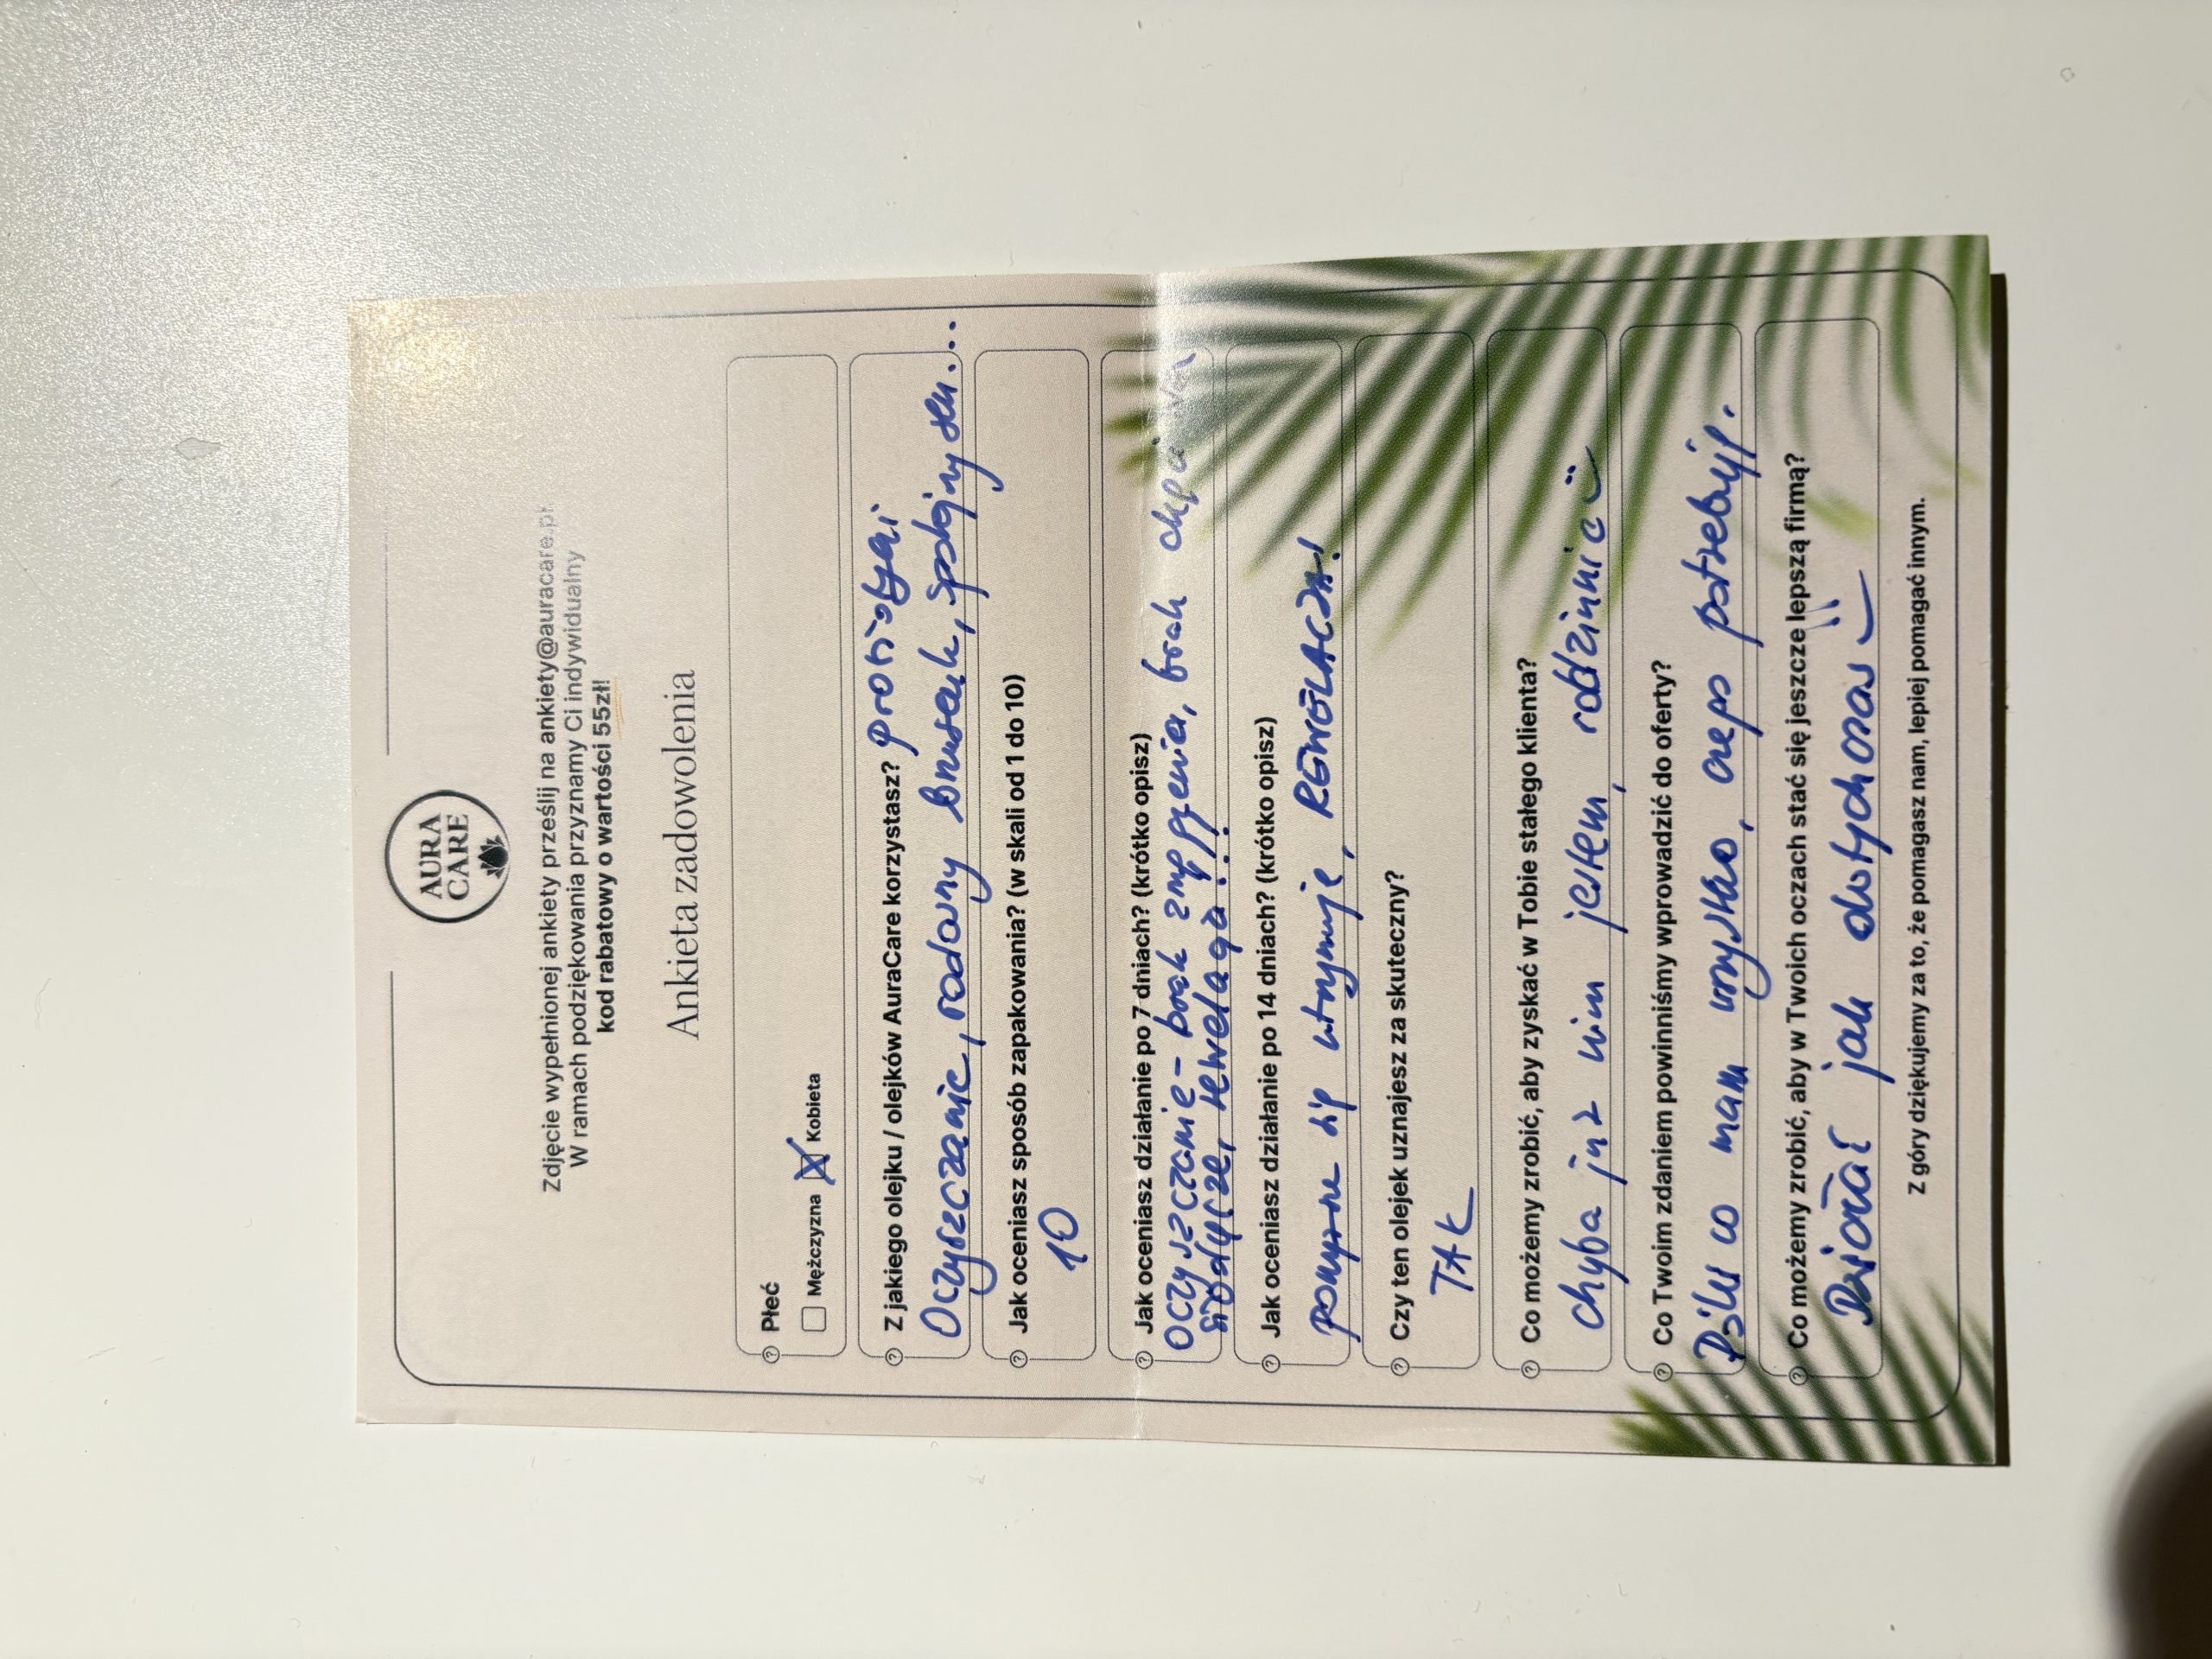 AURA
CARE
Zdjęcie wypełnionej ankiety prześlij na ankiety@auracare.pl.
W ramach podziękowania przyznamy Ci indywidualny
kod rabatowy o wartości 55zł!
Ankieta zadowolenia
Płeć
Mężczyzna X Kobieta
Z jakiego olejku / olejków AuraCare korzystasz?
Oczyszczanie, radosny brzuszek, spokojny sen...
Jak oceniasz sposób zapakowania? (w skali od 1 do 10)
10
Jak oceniasz działanie po 7 dniach? (krótko opisz)
Oczyszczanie - brak zmęczenia, brak chęci na
słodycze, rewelacja!!!
Jak oceniasz działanie po 14 dniach? (krótko opisz)
powyższe się utrzymuje, REWELACJA!
Czy ten olejek uznajesz za skuteczny?
TAK
Co możemy zrobić, aby zyskać w Tobie stałego klienta?
chyba już nim jestem, rodzinnie
Co Twoim zdaniem powinniśmy wprowadzić do oferty?
Póki co mam wszystko, czego potrzebuję.
Co możemy zrobić, aby w Twoich oczach stać się jeszcze lepszą firmą?
Działać jak dotychczas
Z góry dziękujemy za to, że pomagasz nam, lepiej pomagać innym.